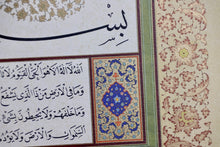 بِسْ
اَللهُ لَا اِلٰهَ اِلَّا هُوَ الْحَيُّ الْقَيُّومُ
وَمَا فِي الْاَرْضِ مَنْ ذَا الَّذِي يَشْفَعُ
وَمَا خَلْفَهُمْ وَلَا يُحِيطُونَ
السَّمٰوَاتِ وَالْاَرْضَ وَلَا يَؤُدُهُ